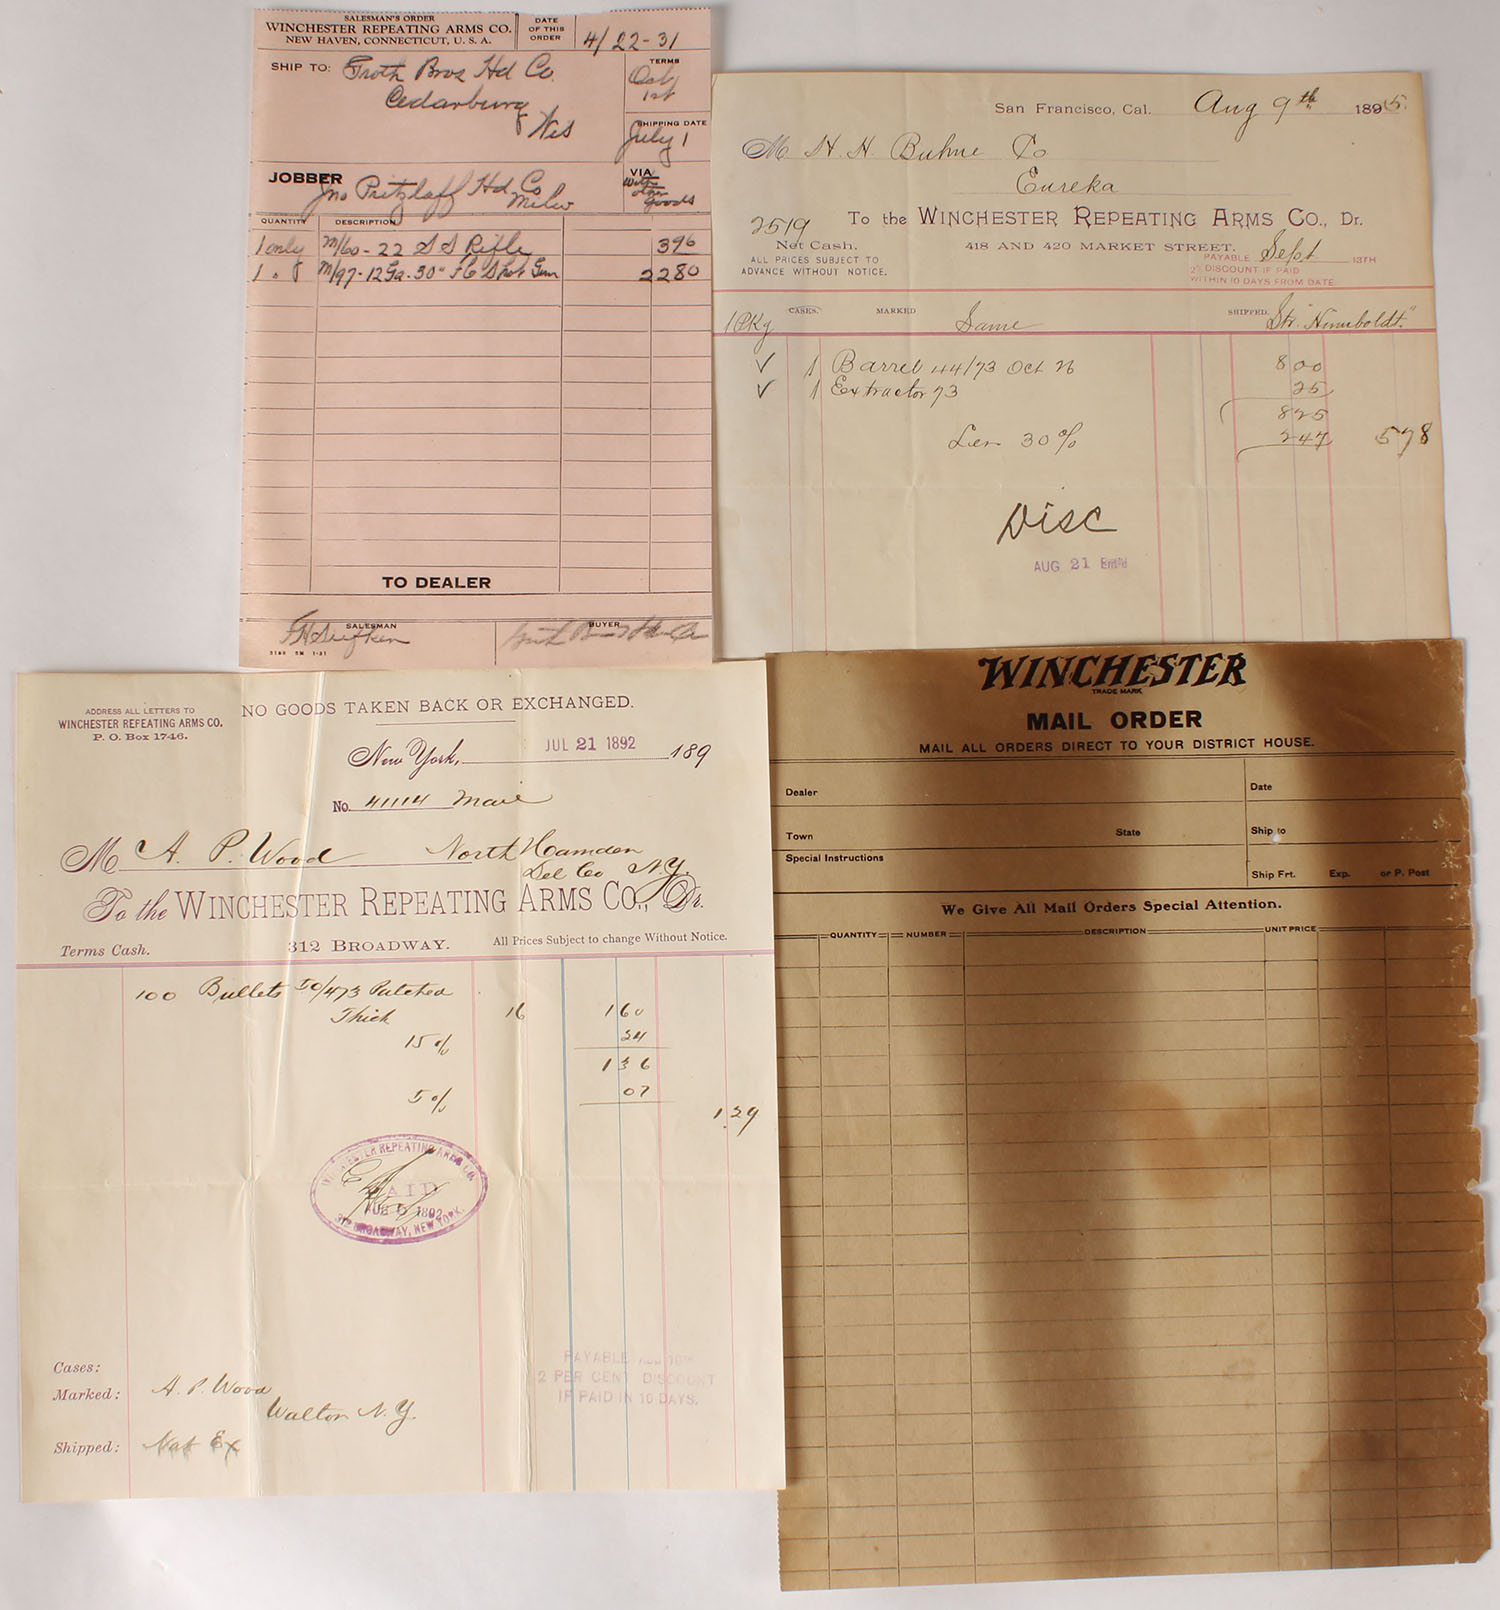 SALESMAN'S ORDER
WINCHESTER REPEATING ARMS CO.
NEW HAVEN, CONNECTICUT, U. S. A.
DATE OF THIS ORDER 4/22-31
SHIP TO: Groth Bros Hd Co.
Cedarburg
Wis
TERMS
Oct 1st
SHIPPING DATE
July 1
JOBBER Jno Pritzlaff Hd Co
Milw
VIA
With other Goods
QUANTITY DESCRIPTION
1 only M/60-22 S S Rifle 396
1 " M/97-12 Ga-30" FC Shot Gun 2280
TO DEALER
SALESMAN
BUYER
5188 5M 1-31
San Francisco, Cal. Aug 9th 1895.
M H. H. Buhne Co
Eureka
2519
To the WINCHESTER REPEATING ARMS CO., Dr.
Net Cash.
418 AND 420 MARKET STREET.
ALL PRICES SUBJECT TO
ADVANCE WITHOUT NOTICE.
PAYABLE Sept 13TH
2% DISCOUNT IF PAID
WITHIN 10 DAYS FROM DATE.
1 Pkg CASES. MARKED Same SHIPPED. Str "Humboldt."
✓ 1 Barrel 44/73 Oct 26 800
✓ 1 Extractor 73 25
825
Less 30% 247 578
Disc
AUG 21
ADDRESS ALL LETTERS TO
WINCHESTER REPEATING ARMS CO.
P. O. Box 1746.
NO GOODS TAKEN BACK OR EXCHANGED.
New York, JUL 21 1892 189
No. 41114 Mail
M A. P. Wood North Hamden
Del Co N.Y.
To the WINCHESTER REPEATING ARMS CO., Dr.
Terms Cash.
312 BROADWAY.
All Prices Subject to change Without Notice.
100 Bullets 50/473 Patched
Thick 16 160
15% 24
136
5% 07
1.29
WINCHESTER REPEATING ARMS CO.
PAID
AUG 5 1892
312 BROADWAY, NEW YORK.
PAYABLE AUG 10TH
2 PER CENT DISCOUNT
IF PAID IN 10 DAYS.
Cases:
Marked: A. P. Wood
Walton N.Y.
Shipped: Nat Ex
WINCHESTER
TRADE MARK
MAIL ORDER
MAIL ALL ORDERS DIRECT TO YOUR DISTRICT HOUSE.
Dealer
Date
Town State
Ship to
Special Instructions
Ship Frt. Exp. or P. Post
We Give All Mail Orders Special Attention.
QUANTITY NUMBER DESCRIPTION UNIT PRICE